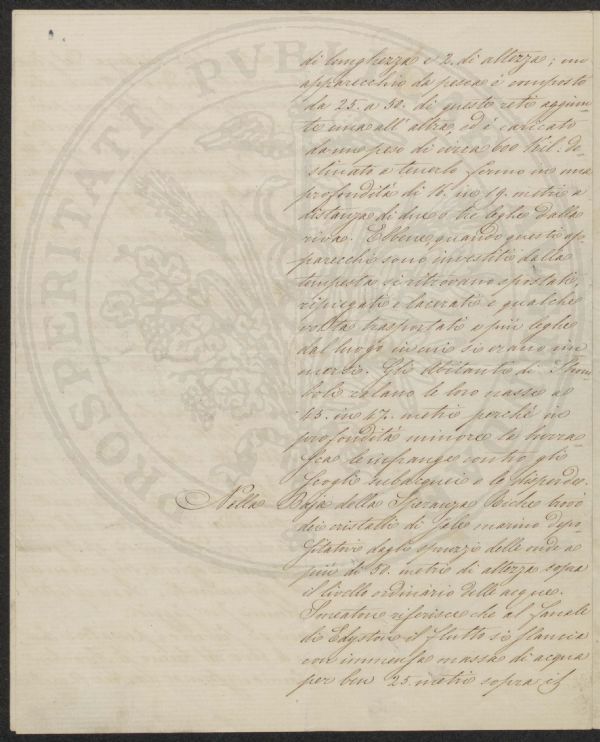 di lunghezza e 2. di altezza; un
apparecchio da pesca è composto
da 25. a 50. di queste reti aggiun-
te una all'altra, ed è caricato
da un peso di circa 600 Kil. de-
stinato a tenerlo fermo in una
profondità di 16. in 19. metri a
distanza di due o tre leghe dalla
riva. Ebbene quando questi ap-
parecchi sono investiti dalla
tempesta si ritrovano spostati,
ripiegati e lacerati e qualche
volta trasportati a più leghe
dal luogo in cui si erano im-
mersi. Gli abitanti di Strom-
boli calano le loro nasse a
45. in 47. metri perché in
profondità minore la burra-
sca le infrange contro gli
scogli subacquei e le disperde.
Nella Baja della Speranza trovò
dei cristalli di sale marino depo-
sitativi dagli spruzzi delle onde a
più di 50. metri di altezza sopra
il livello ordinario delle acque.
Smeaton riferisce che al fanale
di Edystone il flutto si slancia
con immensa massa di acqua
per ben 25. metri sopra il
PROSPERITATI PVBL